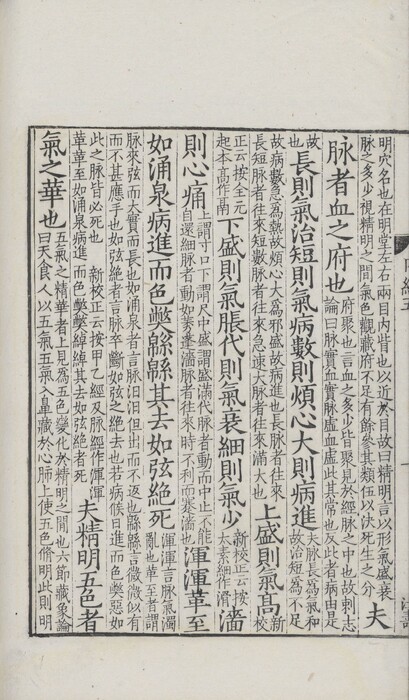 明穴名也在明堂左右兩目内眥也以近於目故曰精明言以形氣盛衰
脉之多少視精明之間氣色觀藏府不足有餘參其類伍以决死生之分
夫
脉者血之府也
府聚也言血之多少皆聚見於經脉之中也故刺志
論曰脉實血實脉虚血虚此其常也反此者病由是
故
也
長則氣治短則氣病數則煩心大則病進
夫脉長爲氣和
故治短爲不足
故病數急爲熱故煩心大爲邪盛故病進也長脉者往來
長短脉者往來短數脉者往來急速大脉者往來滿大也
上盛則氣髙
新
校
正云按全元
起本髙作鬲
下盛則氣脹代則氣衰細則氣少
新校正云按
太素細作滑
濇
則心痛
上謂寸口下謂尺中盛謂盛滿代脉者動而中止不能
自還細脉者動如莠蓬濇脉者往來時不利而蹇濇也
渾渾革至
如涌泉病進而色弊緜緜其去如弦絶死
渾渾言脉氣濁
亂也革至者謂
脉來弦而大實而長也如涌泉者言脉汩汩但出而不返也緜緜言微微似有
而不甚應手也如弦絶者言脉卒斷如弦之絶去也若病候日進而色弊惡如
此之脉皆必死也 新校正云按甲乙經及脉經作渾渾
革革至如涌泉病進而色弊弊綽綽其去如弦絶者死
夫精明五色者
氣之華也
五氣之精華者上見爲五色變化於精明之間也六節藏象論
曰天食人以五氣五氣入鼻藏於心肺上使五色脩明此則明